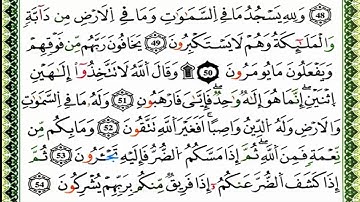 (48) وَلِلّٰهِ يَسْجُدُ مَا فِي السَّمٰوٰتِ وَمَا فِي الْاَرْضِ مِنْ دَآبَّةٍ
وَالْمَلٰٓئِكَةُ وَهُمْ لَا يَسْتَكْبِرُونَ (49) يَخَافُونَ رَبَّهُمْ مِنْ فَوْقِهِمْ
وَيَفْعَلُونَ مَا يُؤْمَرُونَ (50) وَقَالَ اللّٰهُ لَا تَتَّخِذُٓوا اِلٰهَيْنِ
اثْنَيْنِۚ اِنَّمَا هُوَ اِلٰهٌ وَاحِدٌۚ فَاِيَّايَ فَارْهَبُونِ (51) وَلَهُ مَا فِي السَّمٰوٰتِ
وَالْاَرْضِ وَلَهُ الدّ۪ينُ وَاصِبًاۜ اَفَغَيْرَ اللّٰهِ تَتَّقُونَ (52) وَمَا بِكُمْ مِنْ
نِعْمَةٍ فَمِنَ اللّٰهِ ثُمَّ اِذَا مَسَّكُمُ الضُّرُّ فَاِلَيْهِ تَجْـَٔرُونَۚ (53) ثُمَّ
اِذَا كَشَفَ الضُّرَّ عَنْكُمْ اِذَا فَر۪يقٌ مِنْكُمْ بِرَبِّهِمْ يُشْرِكُونَۙ (54)